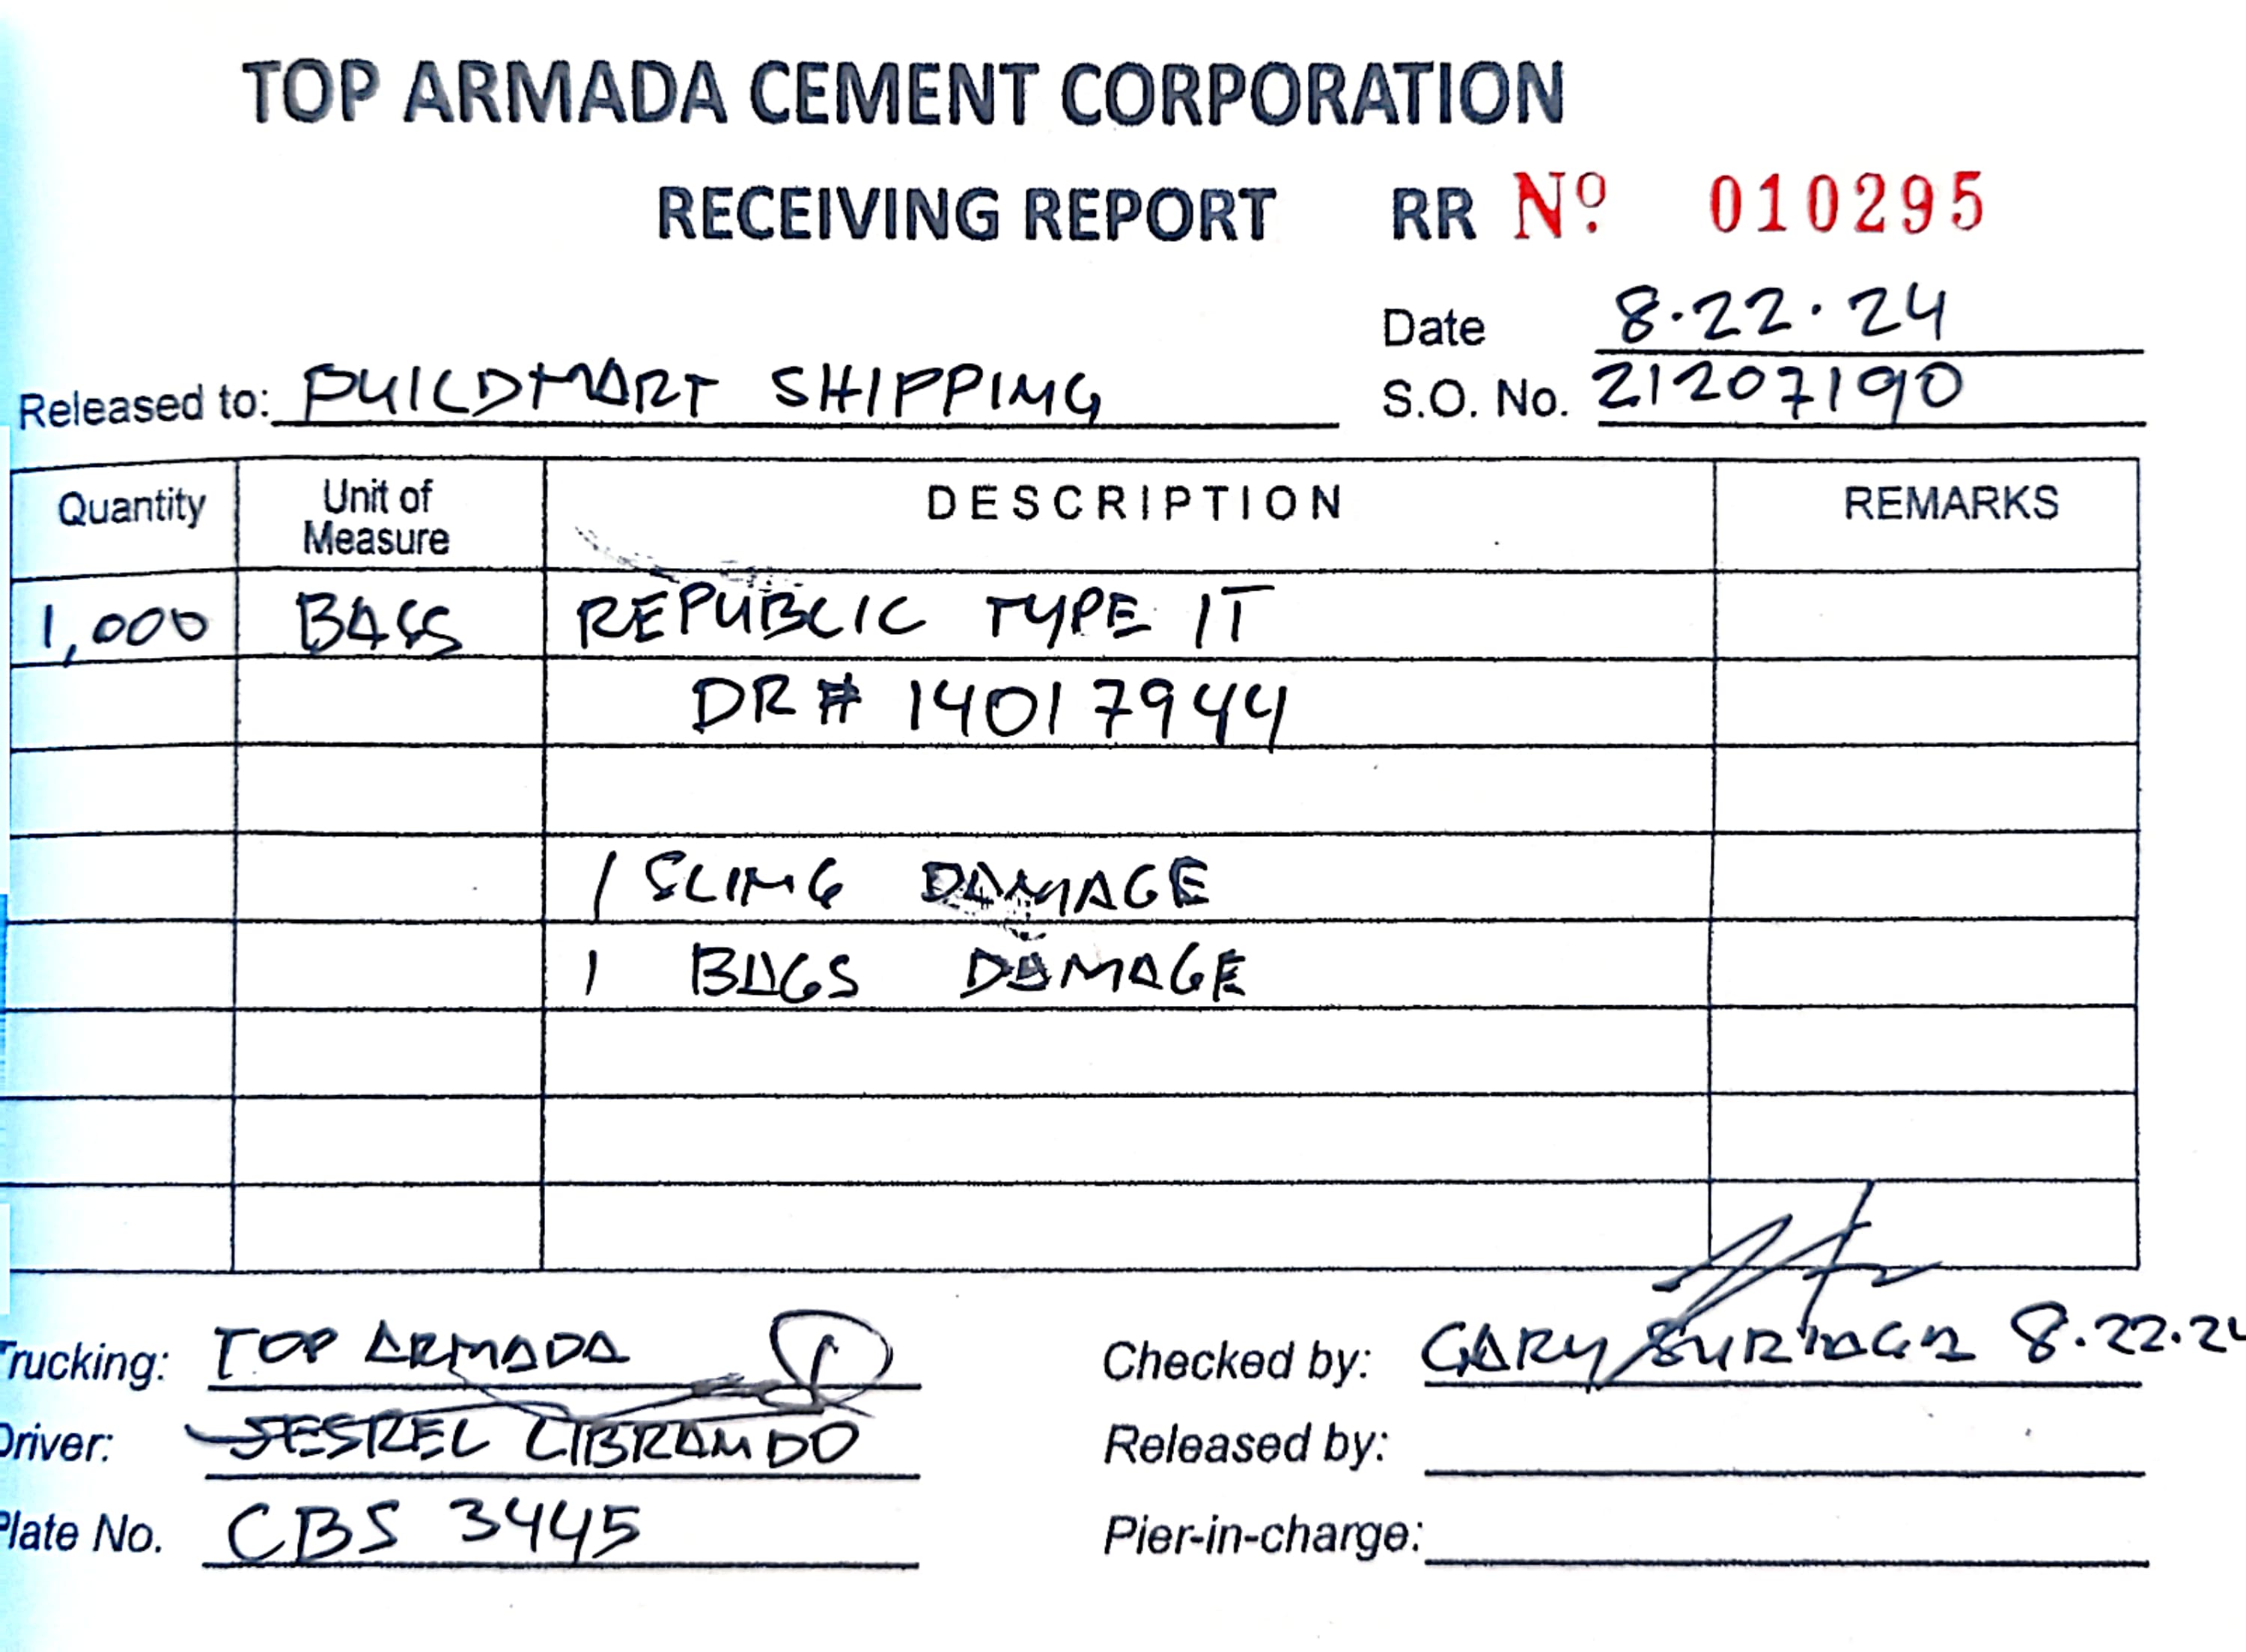 TOP ARMADA CEMENT CORPORATION
RECEIVING REPORT RR Nº 010295
Date 8.22.24
Released to: BUILDMART SHIPPING S.O. No. 21207190
Quantity Unit of Measure DESCRIPTION REMARKS
1,000 BAGS REPUBLIC TYPE 1T
DR # 14017944
1 SLING DAMAGE
1 BAGS DAMAGE
Trucking: TOP ARMADA Checked by: GARY 8.22.24
Driver: JESREL LIBRANDO Released by:
Plate No. CBS 3445 Pier-in-charge: